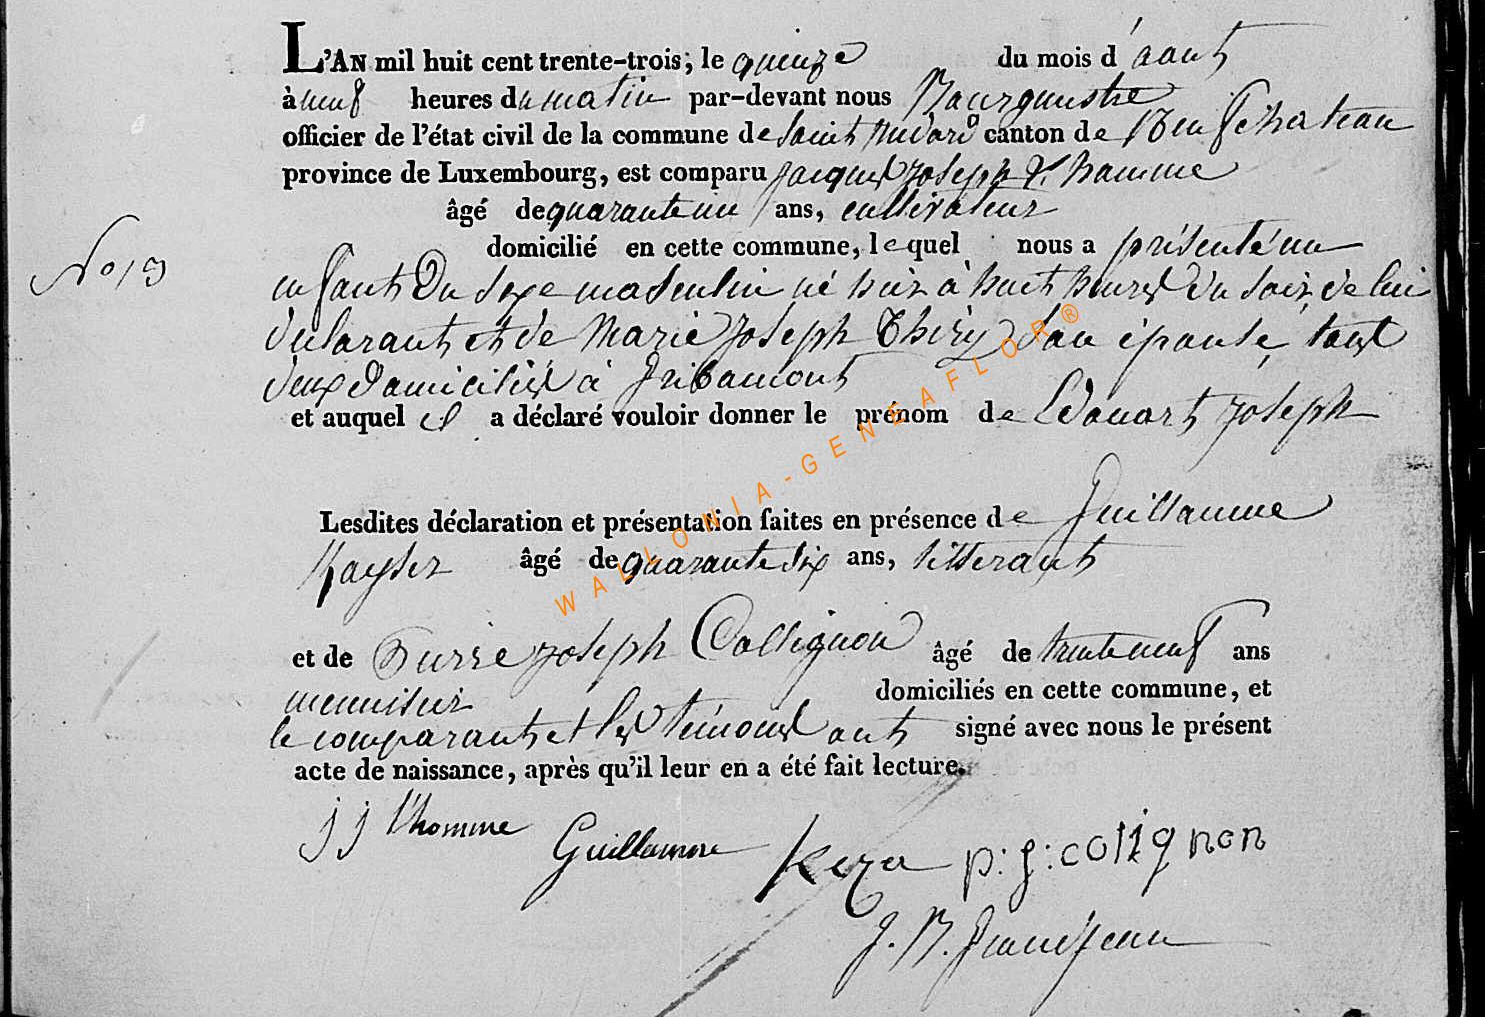 L'AN mil huit cent trente-trois; le quinze du mois d'aout
à neuf heures du matin par-devant nous Bourgmestre
officier de l'état civil de la commune de Saint Medard canton de Neufchateau
province de Luxembourg, est comparu Jacques Joseph L'hamme
âgé de quarante un ans, cultivateur
domicilié en cette commune, lequel nous a présenté un
No 19
enfant du sexe masculin né hier à huit heures du soir de lui
declarant et de Marie Joseph Thiry son épouse, tous
deux domiciliés à Gribamont
et auquel il a déclaré vouloir donner le prénom de Edouart Joseph
Lesdites déclaration et présentation faites en présence de Guillaume
Kayser âgé de quarante six ans,
et de Pierre Joseph Collignon âgé de trente neuf ans
menuisier domiciliés en cette commune, et
le comparant et les témoins ont signé avec nous le présent
acte de naissance, après qu'il leur en a été fait lecture.
j j l'homme Guillamme p: j: colignon
J. N. Grandjean
WALLONIA-GENEAFLOR®